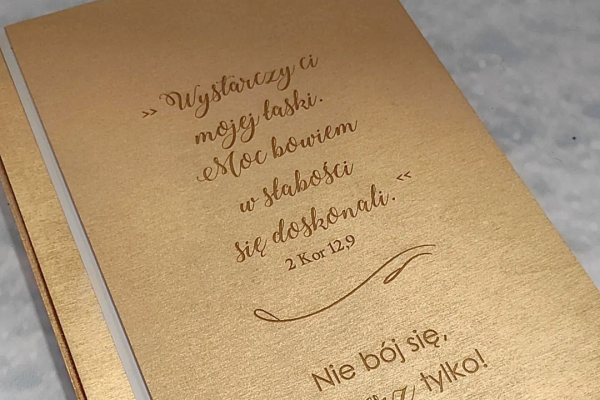 » Wystarczy ci
mojej łaski.
Moc bowiem
w słabości
się doskonali. «
2 Kor 12,9
Nie bój się,
tylko!